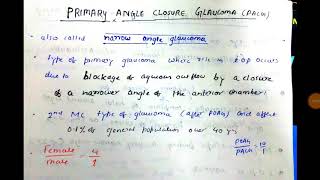 PRIMARY ANGLE CLOSURE GLAUCOMA (PACG)
also called narrow angle glaucoma
type of primary glaucoma where rise in iop occurs
due to blockage of aqueous outflow by a closure
of a narrower angle of the anterior chamber
2nd MC type of glaucoma (after POAG) and affect
0.1% of general population over 40 yrs
POAG / PACG = 10 / 1
Female / male = 4 / 1